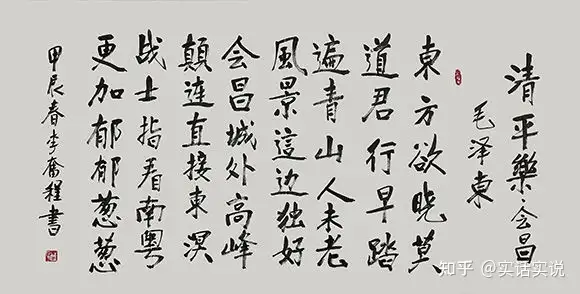 清平樂·会昌
毛泽東
東方欲晓莫
道君行早踏
遍青山人未老
風景這边独好
会昌城外高峰
顛连直接東溟
战士指看南粤
更加郁郁葱葱
甲辰春李奮程書
知乎 @实话实说